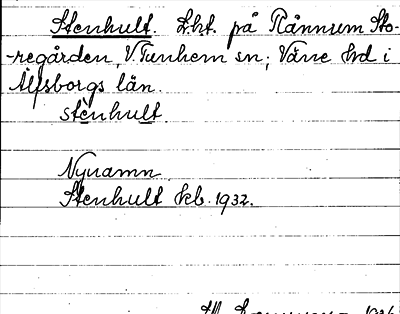 Stenhult. Lht. på Rånnum Sto-
regården, V. Tunhem sn; Väne hd i
Älfsborgs län.
stenhult.
Nynamn.
Stenhult kb. 1932.